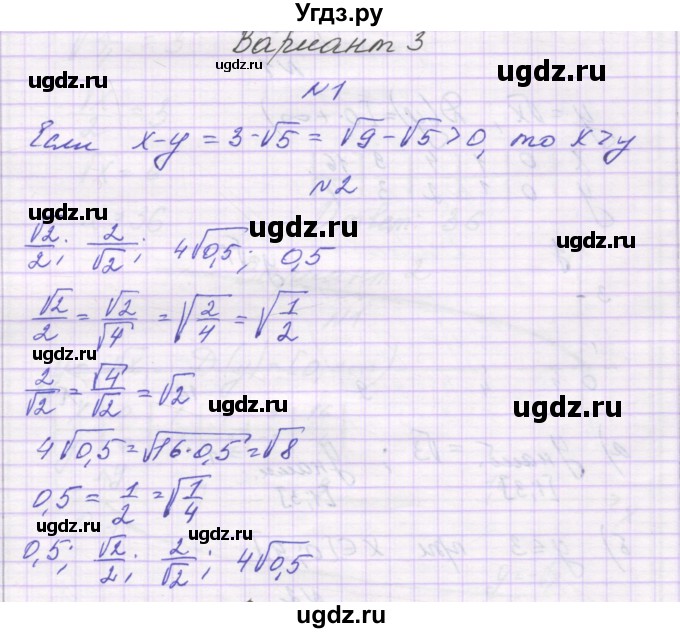 Угдз.ру
Вариант 3
ugdz.ru ugdz.ru
№1
Если x-y = 3-√5 = √9-√5 > 0, то x > y
№2
ugdz.ru ugdz.ru
√2/2; 2/√2; 4√0,5; 0,5
ugdz.ru
√2/2 = √2/√4 = √(2/4) = √(1/2)
ugdz.ru
2/√2 = √4/√2 = √2
ugdz.ru ugdz.ru
4√0,5 = √16·0,5 = √8
0,5 = 1/2 = √(1/4)
ugdz.ru ugdz.ru
0,5; √2/2; 2/√2; 4√0,5
ugdz.ru